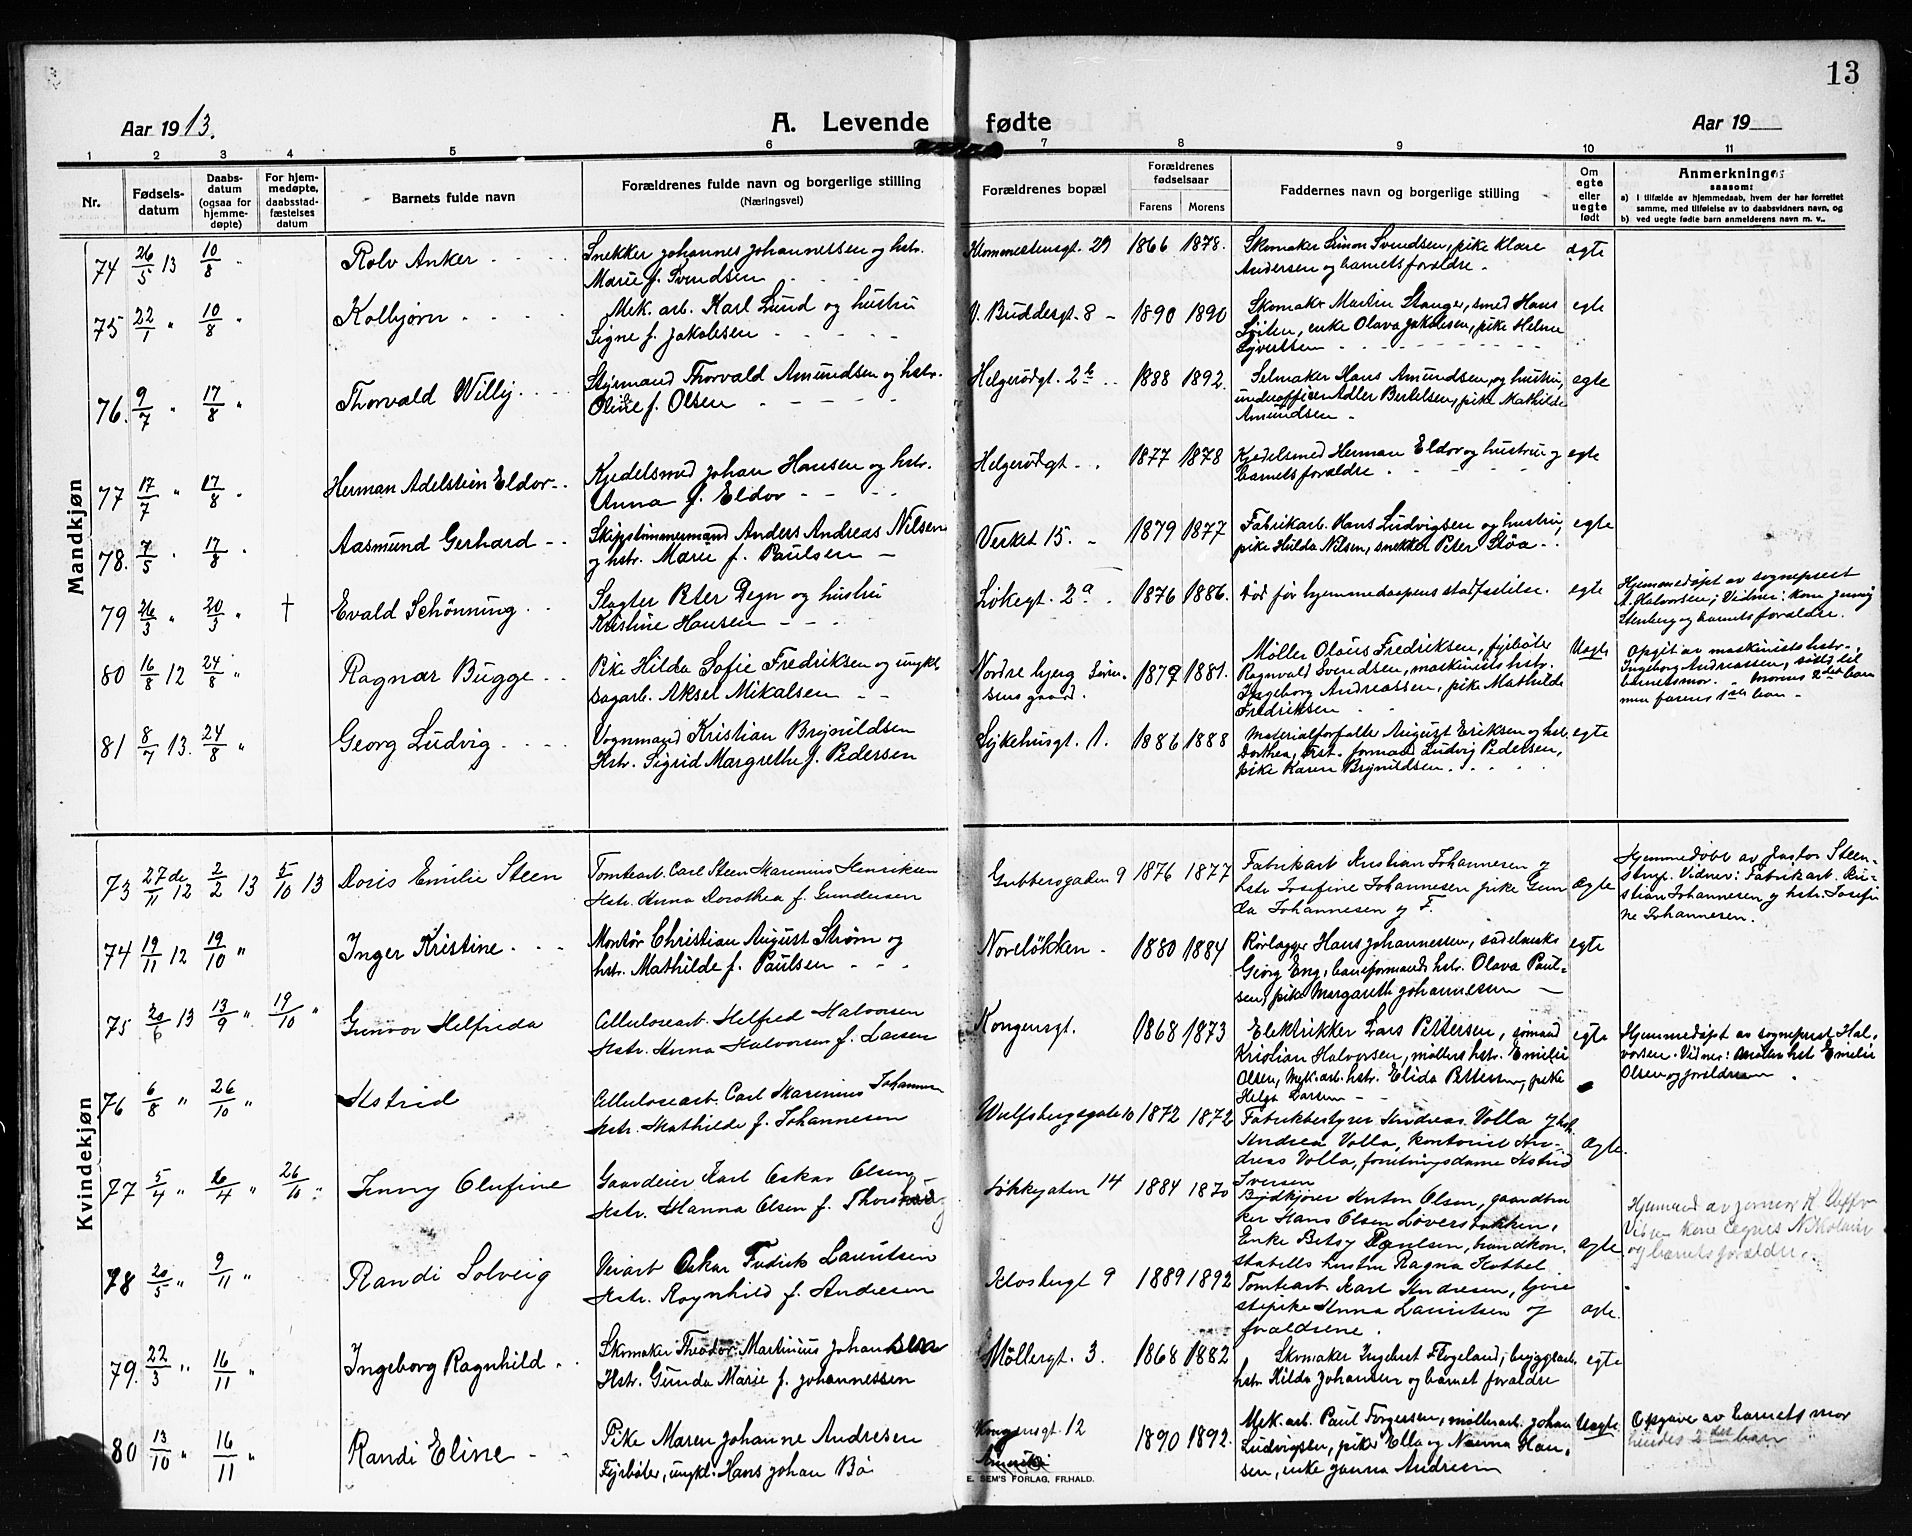 13
Aar 1913.
A. Levende fødte
Aar 19
1 2 3 4 5 6 7 8 9 10 11
Nr.
Fødsels-
datum
Daabs-
datum
(ogsaa for
hjemme-
døpte)
For hjem-
medøpte,
daabsstad-
fæstelses
datum
Barnets fulde navn
Forældrenes fulde navn og borgerlige stilling
(Næringsvei)
Forældrenes bopæl
Forældrenes
fødselsaar
Farens Morens
Faddernes navn og borgerlige stilling
Om
egte
eller
uegte
født
Anmerkninger
saasom:
a) i tilfælde av hjemmedaab, hvem der har forrettet
samme, med tilføielse av to daabsvidners navn, og
b) ved uegte fødte barn anmelderens navn m. v..
Mandkjøn
74 26/5 13 10/8 " Rolv Anker
Snekker Johannes Johannessen og hstr.
Marie f. Svendsen
29 1866 1878.
Skomaker Simon Svendsen, pike Klare
Andersen og barnets forældre.
egte
75 22/1 " 10/8 " Kolbjørn
Mek. arb. Karl Lund og hustru
Signe f. Jakobsen
V. Buddesgt. 8 1890 1890
Skomakr Martin Stanger, smed Hans
enke Olava Jakobsen, pike Helene
Syvertsen
egte
76. 9/7 " 17/8 " Thorvald Willy
Styrmand Thorvald Amundsen og hstr.
Oline f. Olsen
Helgerødgt. 2b 1888 1892.
Selmaker Hans Amundsen, og hustru,
underofficer Adler Bertelsen, pike Mathilde
Amundsen
egte
77 17/7 " 17/8 " Herman Adelstein Eldor
Kjedelsmed Johan Hansen og hstr.
Anna f. Eldor
Helgerødgt. 1877 1878
Kjedelsmed Herman Eldor og hustru og
barnets forældre
egte
78. 7/5 " 17/8 " Aasmund Gerhard
Skipstimmermand Anders Andreas Nilsen
og hstr. Marie f. Paulsen
Verket 15. 1879 1877
Fabrikarb. Hans Ludvigsen og hustru,
pike Hulda Nilsen, snekker Peter Støa
egte
79 26/3 " 20/5 " † Evald Schönning
Slagter Peter Degn og hustru
Kristine Hansen
Løkegt. 2a 1876 1886.
Død før hjemmedaapens stadfestelse.
egte
Hjemmedøpt av sogneprest
A. Halvorsen; Vidner: kone Jenny
Stenberg og barnets forældre.
80 16/8 12 24/8 " Ragnar Bugge
Pike Hilda Sofie Fredriksen og ungk.
Sagarb. Aksel Mikalsen
Nordre bjerg
gaard. 1879 1881.
Møller Olaus Fredriksen, fyrbøter
Ragnvald Svendsen, maskinists hstr.
Ingeborg Andreassen, pike Mathilde
Fredriksen
Uegte
Opgit av maskinists hstr.
Ingeborg Andreassen, søster til
barnets mor. morens 2det barn
men farens 1ste barn
81 8/7 13. 24/8 " Georg Ludvig
Vognmand Kristian Brynildsen
Hstr. Sigrid Margrethe f. Pedersen
Sykehusgt. 1. 1886 1888
Materialforfalter August Eriksen og hst.
Dorthea, formand Ludvig Pedersen,
pike Karen Brynildsen.
egte
Kvindekjøn
73 27de/11 12 2/2 13 5/10 13 Doris Emilie Steen
Tomtearb. Carl Steen Marinius Henriksen
Hstr. Anna Dorothea f. Gundersen
Gubbersgaten 9 1876 1877
Fabrikarb Kristian Johannesen og
hstr Josefine Johannesen pike Gun
da Johannesen og F.
Ægte
Hjemmedøbt av Pastor Steen-
strup. Vidner: Fabrikarb. Kri-
stian Johannesen og hstr. Josefi
ne Johannesen.
74 19/11 12 19/10 " Inger Kristine
Montør Christian August Strøm og
hstr. Mathilde f. Paulsen
Noreløkken 1880 1884
Rørlægger Hans Johannessen, sadelmaks
Georg Eng, baneformands hstr. Olava Paul-
sen, pike Margareth Johannessen
egte
75 20/6 13 13/9 " 19/10 " Gunvor Helfrida
Cellulosearb. Helfred Halvorsen
Hstr. Anna Halvorsen f. Larsen
Kongensgt. 1868 1873
Elektrikker Lars Pettersen, sømand
Kristian Halvorsen, møllers hstr. Emilie
Olsen, Mek. arb. hstr. Elida Pettersen, pike
Helga Larsen
egte
Hjemmedøpt av sogneprest Hal-
vorsen. Vidner: Møller hst Emelie
Olsen og forældrene
76 6/8 " 26/10 " Astrid
Cellulosearb. Carl Marinius Johannesen
Hstr. Mathilde f. Johannesen
Wulfsbergsgate 10 1872 1872
Fabrikbestyrer Andreas Volla og hstr
Andrea Volla, kontorist An-
dreas Volla, foretningsdame Astrid
Iversen
Ægte.
77 5/4 " 6/4 " 26/10 " Jenny Olufine
Gaardeier Karl Oskar Olsen
Hstr. Hanna Olsen f.
Løkkegaten 14 1884 1870
Bydkjører Anton Olsen, gaardbru
ker Hans Olsen Løversbakken,
Enke Betsy Paulsen, brandkon-
stabels hustru Ragna Kothel
ægte
Hjemmed av
Vidne Kone Agnes Nikolaisen
og barnets forældre.
78 20/5 " 9/11 " Randi Solveig
Veiarb Oskar Fredrik Lauritsen
Hstr. Ragnhild f. Andresen
Klosbergt 9 1889 1892
Tomtearb. Karl Andresen, tjene
stepike Anna Lauritsen og
forældrene.
ægte
79. 22/3 " 16/11 " Ingeborg Ragnhild
Skomaker Theodor Martinius Johansen
Hstr. Gunda Marie f. Johannessen
Møllergt. 3. 1868 1882
Skomaker Ingebret Flogeland, bryggearb.
hstr Hilda Johansen og barnet forældre
egte
80 13/10 " 16/11 " Randi Eline
Pike Maren Johanne Andresen
Fyrbøter, ungk. Hans Johan Bø
Kongensgt 12
Amerika 1890 1892.
Mek. arb. Paul Torgersen, møllearb. Johan
Ludvigsen, pike Ella og Nanna Han-
sen, enke Janna Andresen
Uegte
Opgave av barnets mor
hendes 2det barn
E. SEM'S FORLAG, FR.HALD.